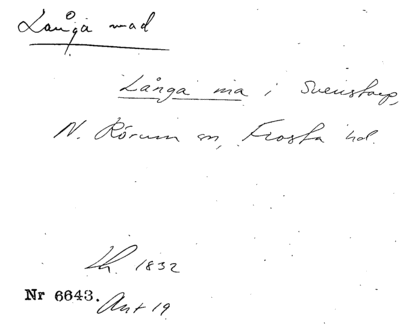 Långa mad
Långa ma i Svenstorp,
N. Rörum sn, Frosta hd.
Lh. 1832
Nr 6643. Ant 19